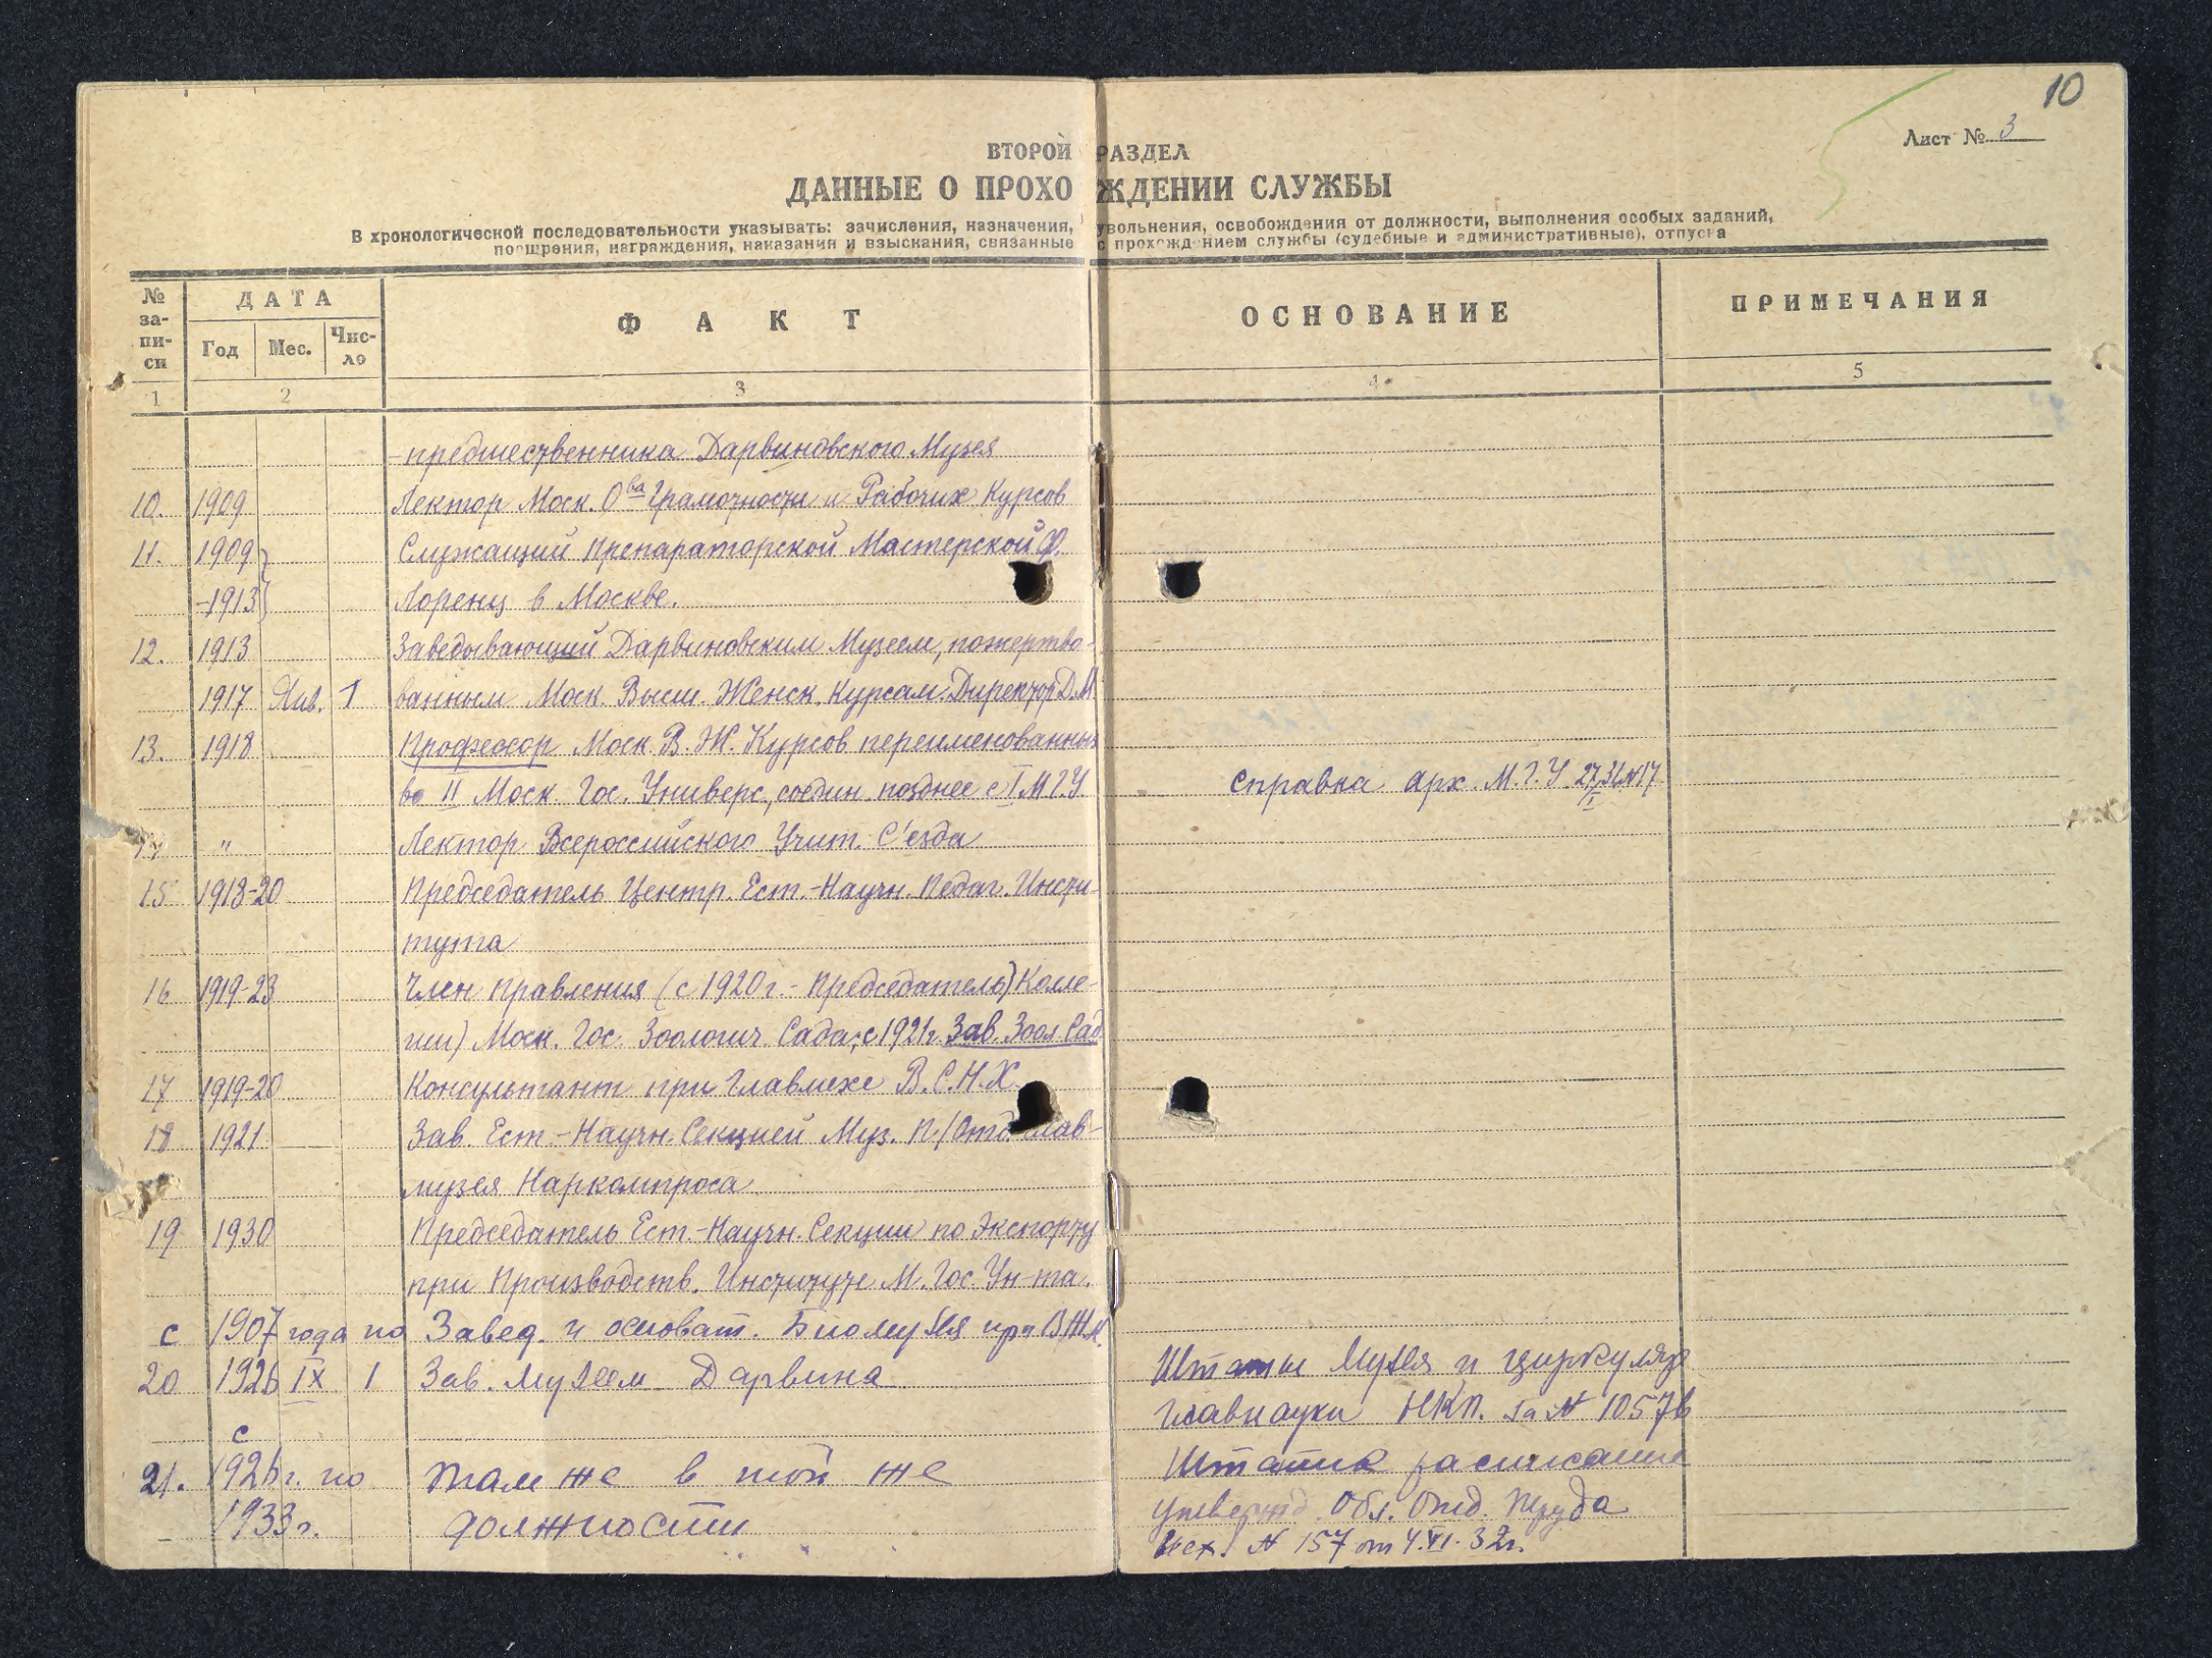 10
Лист № 3
ВТОРОЙ РАЗДЕЛ
ДАННЫЕ О ПРОХОЖДЕНИИ СЛУЖБЫ
В хронологической последовательности указывать: зачисления, назначения, увольнения, освобождения от должности, выполнения особых заданий,
поощрения, награждения, наказания и взыскания, связанные с прохождением службы (судебные и административные), отпуска
№ за-пи-си ДАТА Год Мес. Чис-ло ФАКТ ОСНОВАНИЕ ПРИМЕЧАНИЯ
1 2 3 4 5
-предшественника Дарвиновского Музея
10. 1909 Лектор Моск. О-ва Грамотности и Рабочих Курсов
11. 1909 Служащий Препараторской Мастерской Ф.
-1913 Лоренц в Москве.
12. 1913 Заведывающий Дарвиновским Музеем, пожертво-
1917 Янв. 1 ванным Моск. Высш. Женск. Курсам. Директор Д.М.
13. 1918 Профессор Моск. В. Ж. Курсов переименованных
во II Моск. Гос. Универс., соедин. позднее с I М.Г.У. Справка арх. М.Г.У. 27/I 31 №17
" Лектор Всероссийского Учит. С'езда
15 1918-20 Председатель Центр. Ест.-Научн. Педаг. Инсти-
тута
16 1919-23 Член Правления (с 1920 г. - Председатель) Колле-
гии) Моск. Гос. Зоологич. Сада; с 1921 г. Зав. Зоол. Сад.
17 1919-20 Консультант при Главмехе В.С.Н.Х.
18 1921 Зав. Ест.-Научн. Секцией Муз. П/Отд. Глав-
музея Наркомпроса
19 1930 Председатель Ест.-Научн. Секции по Экспорту
при Производств. Институте М. Гос. Ун-та.
с 1907 года по Завед. и основат. Биомузея при ВЖК.
20 1926 IX 1 Зав. Музеем Дарвина Штаты Музея и циркуляр
Главнауки НКП. за № 10576
с
21. 1926 г. по там же в той же Штатное расписание
1933 г. должности утвержд. Обл. Отд. Труда
Исх. № 157 от 4.VI.32 г.